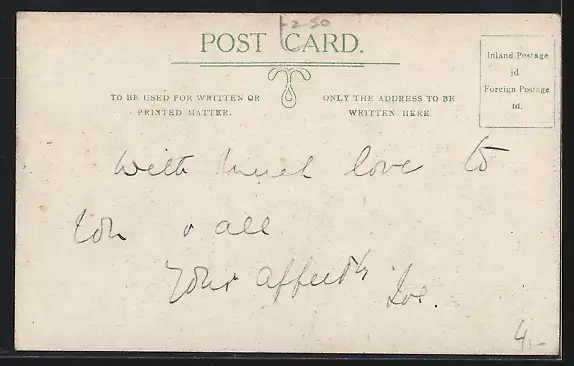 2-50
POST CARD.
Inland Postage
½d
Foreign Postage
1d.
TO BE USED FOR WRITTEN OR
PRINTED MATTER.
ONLY THE ADDRESS TO BE
WRITTEN HERE
With much love to
you & all
Your affectly
Joe.
4,-